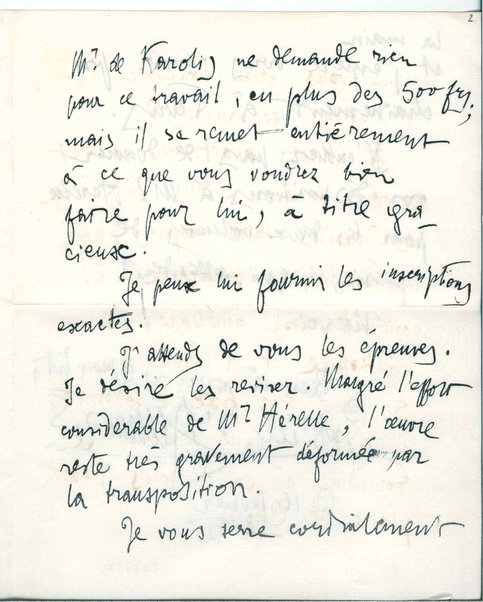 2
Mr. de Karolis ne demande rien
pour ce travail, en plus des 500 frs;
mais il se remet entièrement
à ce que vous voudrez bien
faire pour lui, à titre gra
cieux.
Je peux lui fournir les inscriptions
exactes.
J'attends de vous les épreuves.
Je désire les reviser. Malgré l'effort
considerable de Mr. Hérelle, l'œuvre
reste très gravement déformée par
la transposition.
Je vous serre cordialement